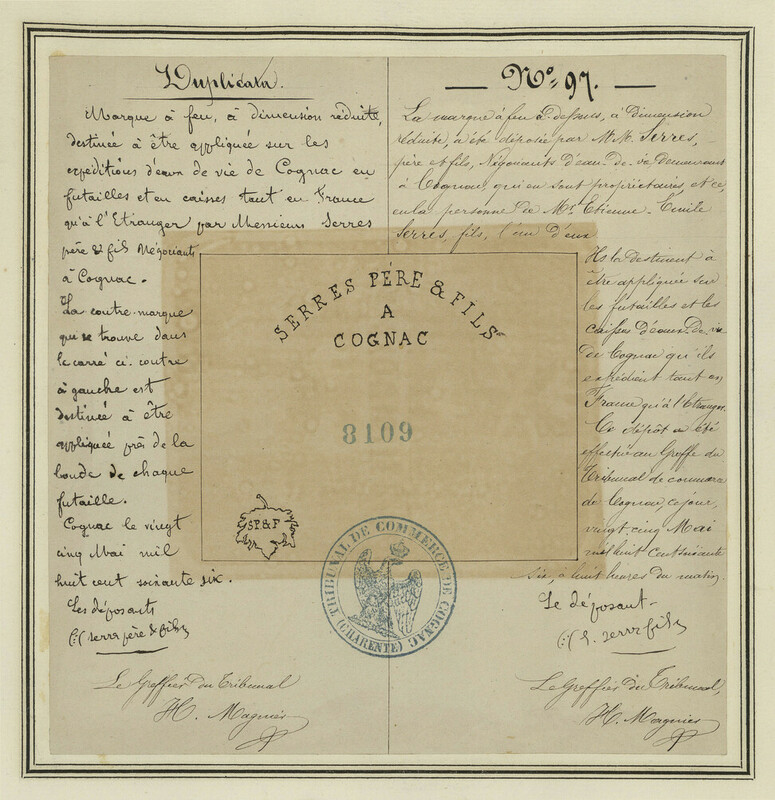 Duplicata.
Marque à feu, à dimension réduite,
destinée à être appliquée sur les
expéditions d'eaux de vie de Cognac en
futailles et en caisses tant en France
qu'à l'Etranger par Messieurs Serres
père & fils Négociants
à Cognac.
La contre-marque
qui se trouve dans
le carré ci-contre
à gauche est
destinée à être
appliquée près de la
bonde de chaque
futaille.
Cognac le vingt
cinq Mai mil
huit cent soixante six.
Les déposants
(:( Serres père & fils
Le Greffier du Tribunal
H. Magnier
— No. 97. —
La marque à feu ci-dessus, à dimension
réduite, a été déposée par M.M. Serres,
père et fils, Négociants d'eau-de-vie demeurant
à Cognac, qui en sont propriétaires, et ce,
en la personne de Mr. Etienne-Emile
Serres, fils, l'un d'eux
Ils la destinent à
être appliquée sur
les futailles et les
caisses d'eaux-de-vie
de Cognac qu'ils
expédient tant en
France qu'à l'Etranger.
Ce dépôt a été
effectué au Greffe du
Tribunal de commerce
de Cognac, ce jour,
vingt cinq Mai
mil huit cent soixante
six, à huit heures du matin.
Le déposant
(:( E. Serres fils
Le Greffier du Tribunal,
H. Magnier
SERRES PÉRE & FILS
A
COGNAC
8109
SP&F
TRIBUNAL DE COMMERCE DE COGNAC
(CHARENTE)